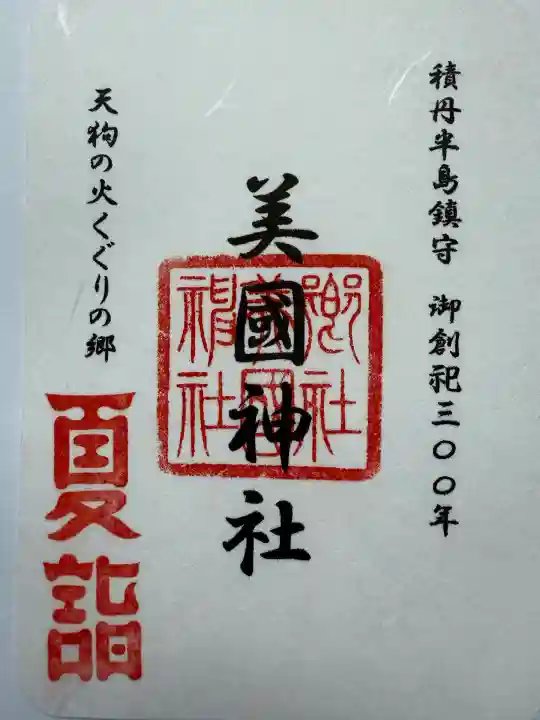 積丹半島鎮守 御創祀三〇〇年
美國神社
郷社美国神社
天狗の火くぐりの郷
夏詣